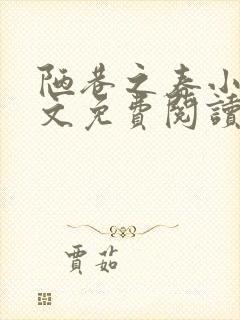 陋巷之春小
文免費閱讀
賈茹